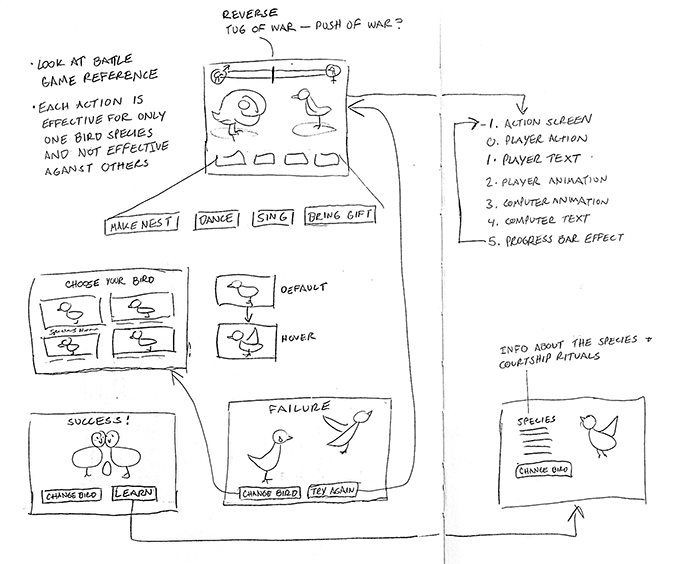 REVERSE
TUG OF WAR — PUSH OF WAR?
• LOOK AT BATTLE
GAME REFERENCE
• EACH ACTION IS
EFFECTIVE FOR ONLY
ONE BIRD SPECIES
AND NOT EFFECTIVE
AGAINST OTHERS
♂
♀
MAKE NEST
DANCE
SING
BRING GIFT
-1. ACTION SCREEN
0. PLAYER ACTION
1. PLAYER TEXT
2. PLAYER ANIMATION
3. COMPUTER ANIMATION
4. COMPUTER TEXT
5. PROGRESS BAR EFFECT
CHOOSE YOUR BIRD
SPECIES NAME
DEFAULT
HOVER
SUCCESS!
CHANGE BIRD
LEARN
FAILURE
CHANGE BIRD
TRY AGAIN
INFO ABOUT THE SPECIES +
COURTSHIP RITUALS
SPECIES
CHANGE BIRD